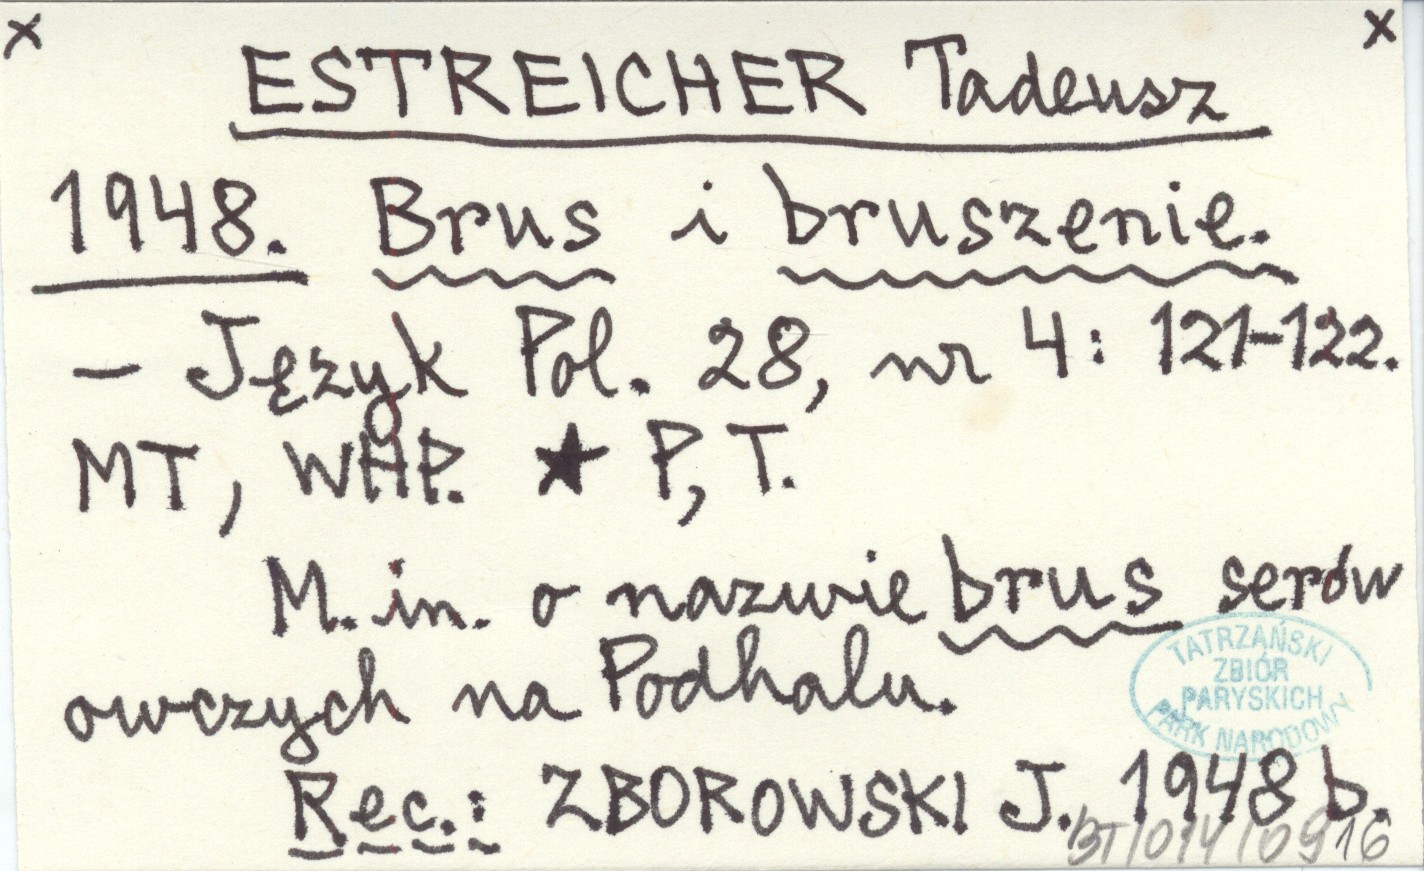 x x
ESTREICHER Tadeusz
1948. Brus i bruszenie.
- Język Pol. 28, nr 4: 121-122.
MT, WHP. ★ P, T.
M. in. o nazwie brus serów
owczych na Podhalu.
TATRZAŃSKI
ZBIÓR
PARYSKICH
PARK NARODOWY
Rec.: ZBOROWSKI J. 1948 b.
BT/014/0916